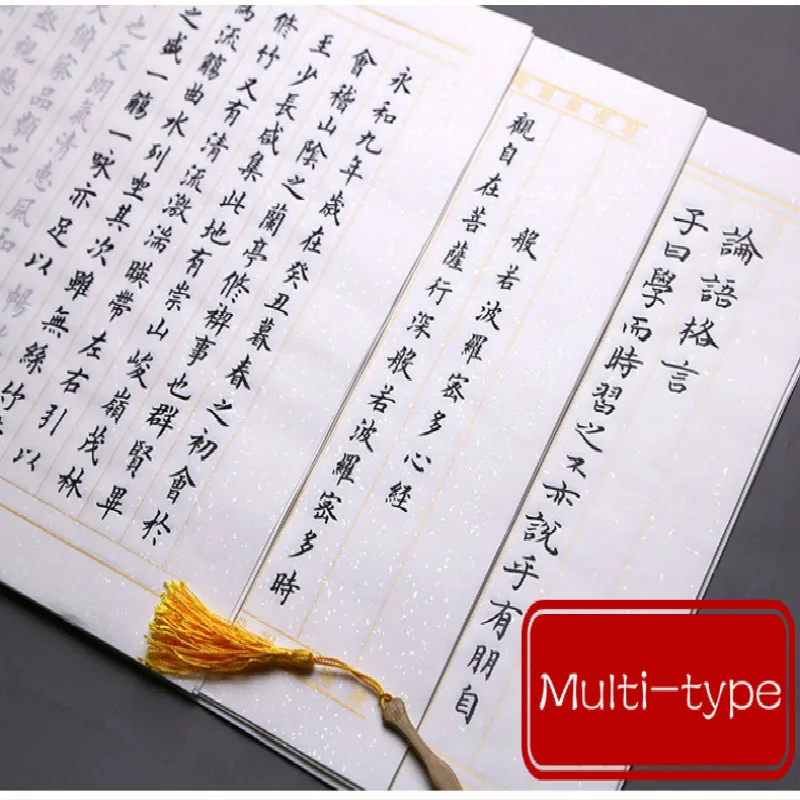 論語格言
子曰學而時習之不亦說乎有朋自
般若波羅密多心經
觀自在菩薩行深般若波羅密多時
永和九年歲在癸丑暮春之初會於
會稽山陰之蘭亭修禊事也群賢畢
至少長咸集此地有崇山峻嶺茂林
修竹又有清流激湍暎帶左右引以
為流觴曲水列坐其次雖無絲竹
之盛一觴一詠亦足以
也天朗氣清惠風和暢
大俯察品類之
極視聽
Multi-type